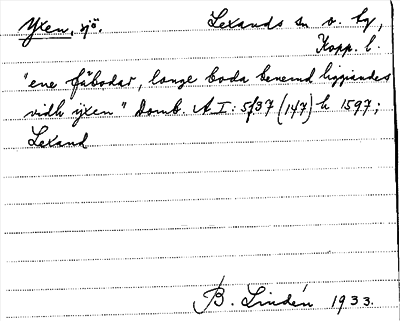 Yxen, sjö. Leksands sn o. hg,
Kopp. l.
"ene fåbodar, lange boda benemd liggiandes
vidh yxen" Domb. A I: 5 f. 37 (147) h 1597;
Lexand
B. Lindén 1933.